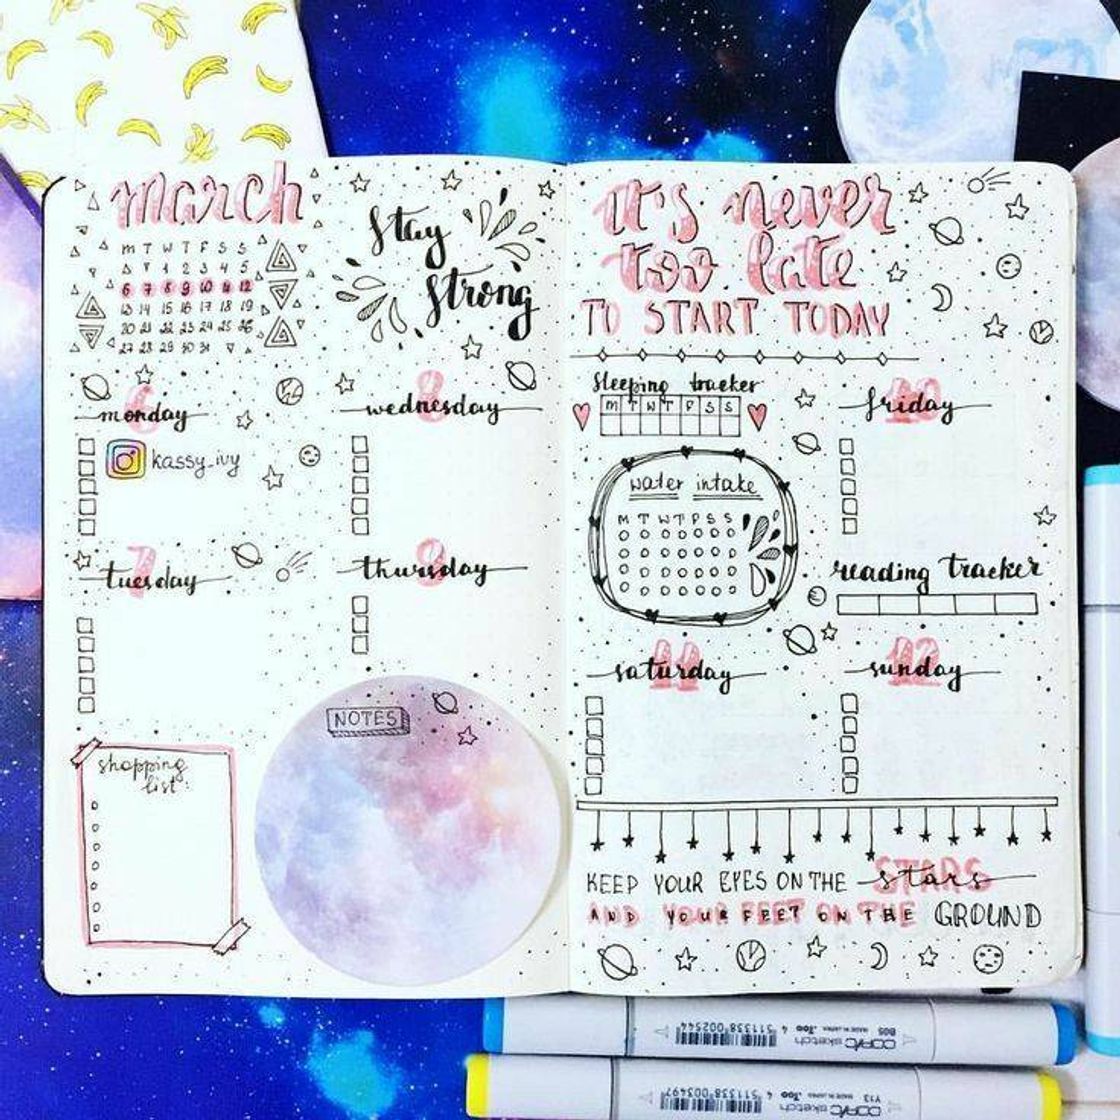 march
M T W T F S S
1 2 3 4 5
6 7 8 9 10 11 12
13 14 15 16 17 18 19
20 21 22 23 24 25 26
27 28 29 30 31
Stay
Strong
6
monday
kassy_ivy
8
wednesday
7
tuesday
9
thursday
NOTES
shopping
list:
it's never
too late
TO START TODAY
sleeping tracker
M T W T F S S
10
friday
water intake
M T W T F S S
reading tracker
11
saturday
12
sunday
KEEP YOUR EYES ON THE STARS stars
AND YOUR FEET ON THE GROUND
B05
COPIC sketch
MADE IN JAPAN
Too
511338 002544
Y13
COPIC sketch
MADE IN JAPAN
Too
511338 003497